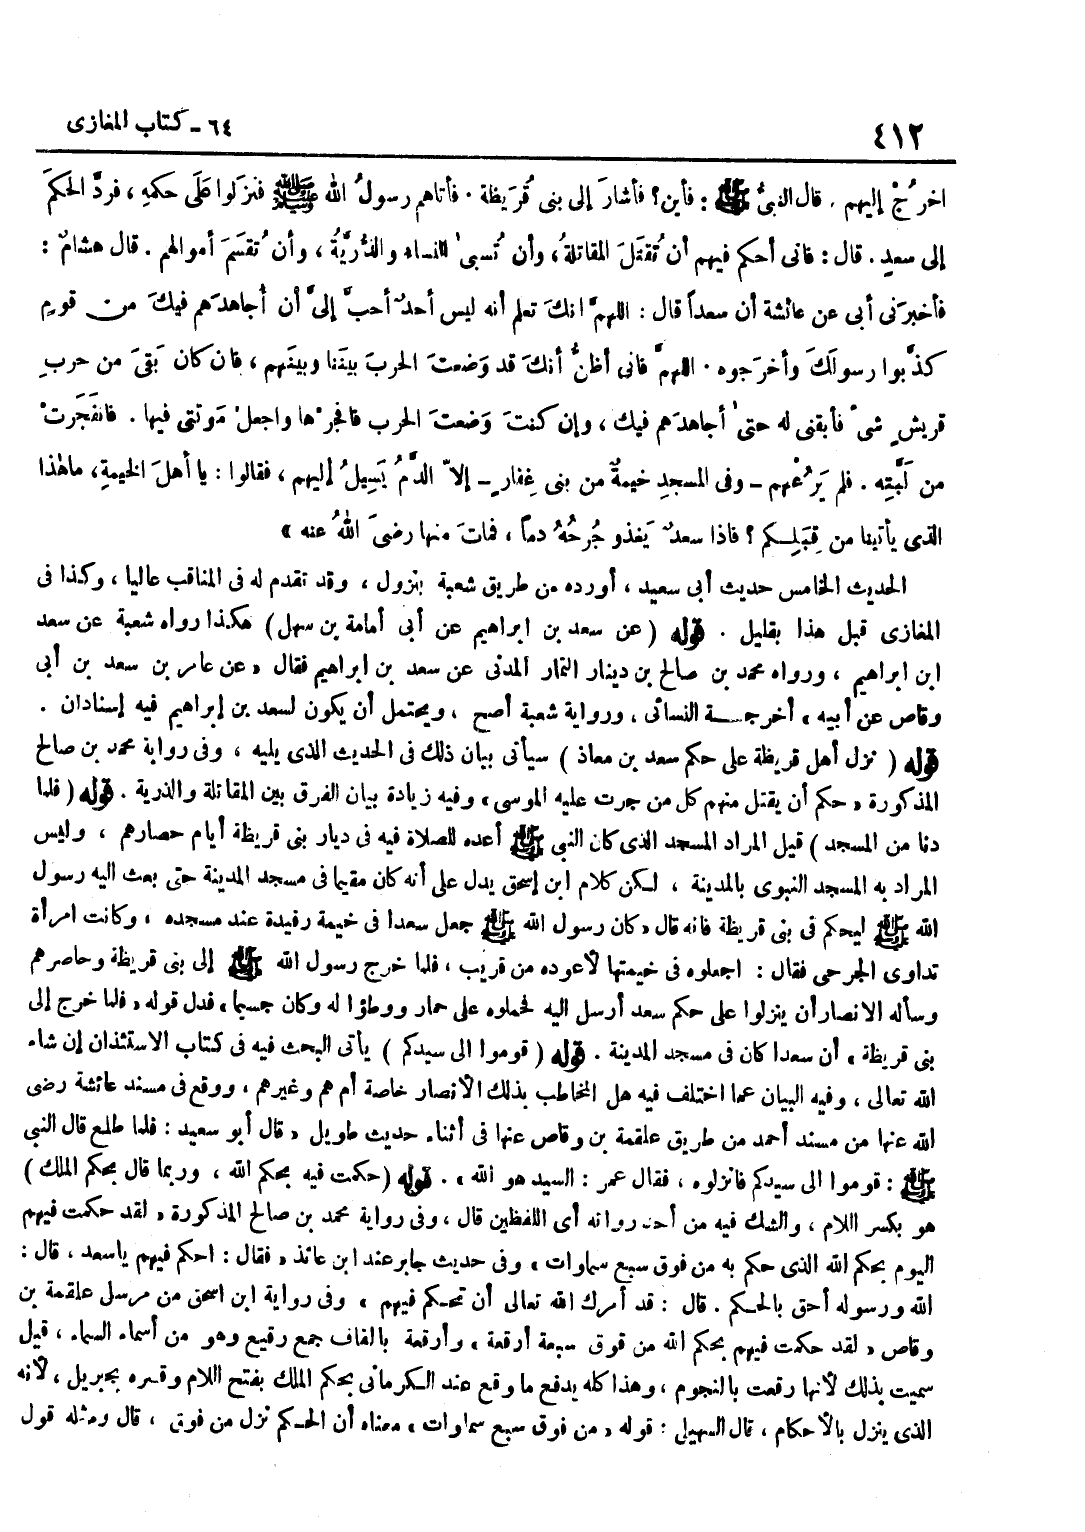 ٤١٢
٦٤ - كتاب المغازى
اخرُجْ إليهم . قال النبىُّ ﷺ : فأين؟ فأشارَ إلى بنى قُرَيظة . فأتاهم رسولُ الله ﷺ فنزلوا عَلَى حكمهِ ، فردَّ الحكمَ
إلى سعدٍ . قال : فانى أحكم فيهم أن تُقتَلَ المقاتلةُ، وأن تُسبىٰ النساء والذُّرِّيَّةُ ، وأن تُقسَمَ أموالهم . قال هشامٌ :
فأخبرَنى أبى عن عائشة أن سعداً قال : اللهمَّ انكَ تعلم أنه ليس أحدٌ أحبَّ إلىَّ أن أُجاهدَهم فيكَ من قومٍ
كذَّبوا رسولَكَ وأخرَجوه . اللهمَّ فانى أظنُّ أنكَ قد وَضعتَ الحربَ بينَنا وبينَهم ، فان كان بَقىَ من حربِ
قريشٍ شىءٌ فأبقنى له حتىٰ أجاهدَهم فيك ، وإن كنتَ وَضعتَ الحرب فافجرْها واجعلْ مَوتتى فيها . فانفَجَرتْ
من لَبَّتِه . فلم يَرُعْهم – وفى المسجدِ خيمةٌ من بنى غِفارٍ – إلاّ الدَّمُ يَسِيلُ إليهم ، فقالوا : يا أهلَ الخيمةِ، ماهٰذا
الذى يأتينا من قِبَلِكم ؟ فاذا سعدٌ يَغذو جُرحُهُ دماً ، فماتَ منها رضىَ اللهُ عنه »
الحديث الخامس حديث أبى سعيد ، أورده من طريق شعبة بنزول ، وقد تقدم له فى المناقب عاليا ، وكذا فى
المغازى قبل هذا بقليل . قوله ( عن سعد بن ابراهيم عن أبى أمامة بن سهل ) هكذا رواه شعبة عن سعد
ابن ابراهيم ، ورواه محمد بن صالح بن دينار التمار المدنى عن سعد بن ابراهيم فقال « عن عامر بن سعد بن أبى
وقاص عن أبيه » أخرجه النسائى ، ورواية شعبة أصح ، ويحتمل أن يكون لسعد بن إبراهيم فيه إسنادان .
قوله ( نزل أهل قريظة على حكم سعد بن معاذ ) سيأتى بيان ذلك فى الحديث الذى يليه ، وفى رواية محمد بن صالح
المذكورة « حكم أن يقتل منهم كل من جرت عليه الموسى » وفيه زيادة بيان الفرق بين المقاتلة والذرية . قوله ( فلما
دنا من المسجد ) قيل المراد المسجد الذى كان النبى ﷺ أعده للصلاة فيه فى ديار بنى قريظة أيام حصارهم ، وليس
المراد به المسجد النبوى بالمدينة ، لكن كلام ابن إسحق يدل على أنه كان مقيما فى مسجد المدينة حتى بعث اليه رسول
الله ﷺ ليحكم فى بنى قريظة فانه قال « كان رسول الله ﷺ جعل سعدا فى خيمة رفيدة عند مسجده ، وكانت امرأة
تداوى الجرحى فقال : اجعلوه فى خيمتها لأعوده من قريب ، فلما خرج رسول الله ﷺ إلى بنى قريظة وحاصرهم
وسأله الانصار أن ينزلوا على حكم سعد أرسل اليه فحملوه على حمار ووطؤا له وكان جسيما ، فدل قوله « فلما خرج إلى
بنى قريظة » أن سعدا كان فى مسجد المدينة . قوله ( قوموا الى سيدكم ) يأتى البحث فيه فى كتاب الاستئذان إن شاء
الله تعالى ، وفيه البيان عما اختلف فيه هل المخاطب بذلك الأنصار خاصة أم هم وغيرهم ، ووقع فى مسند عائشة رضى
الله عنها من مسند أحمد من طريق علقمة بن وقاص عنها فى أثناء حديث طويل « قال أبو سعيد : فلما طلع قال النبى
ﷺ : قوموا الى سيدكم فانزلوه ، فقال عمر : السيد هو الله » . قوله ( حكمت فيه بحكم الله ، وربما قال بحكم الملك )
هو بكسر اللام ، والشك فيه من أحد رواته أى اللفظين قال ، وفى رواية محمد بن صالح المذكورة « لقد حكمت فيهم
اليوم بحكم الله الذى حكم به من فوق سبع سماوات » وفى حديث جابر عند ابن عائذ « فقال : احكم فيهم ياسعد ، قال :
الله ورسوله أحق بالحكم . قال : قد أمرك الله تعالى أن تحكم فيهم » وفى رواية ابن اسحق من مرسل علقمة بن
وقاص « لقد حكمت فيهم بحكم الله من فوق سبعة أرقعة » وأرقعة بالقاف جمع رقيع وهو من أسماء السماء ، قيل
سميت بذلك لأنها رقعت بالنجوم ، وهذا كله يدفع ما وقع عند الكرمانى بحكم الملك بفتح اللام وفسره بجبريل ، لأنه
الذى ينزل بالأحكام ، قال السهيلى : قوله « من فوق سبع سماوات » معناه أن الحكم نزل من فوق ، قال ومثله قول